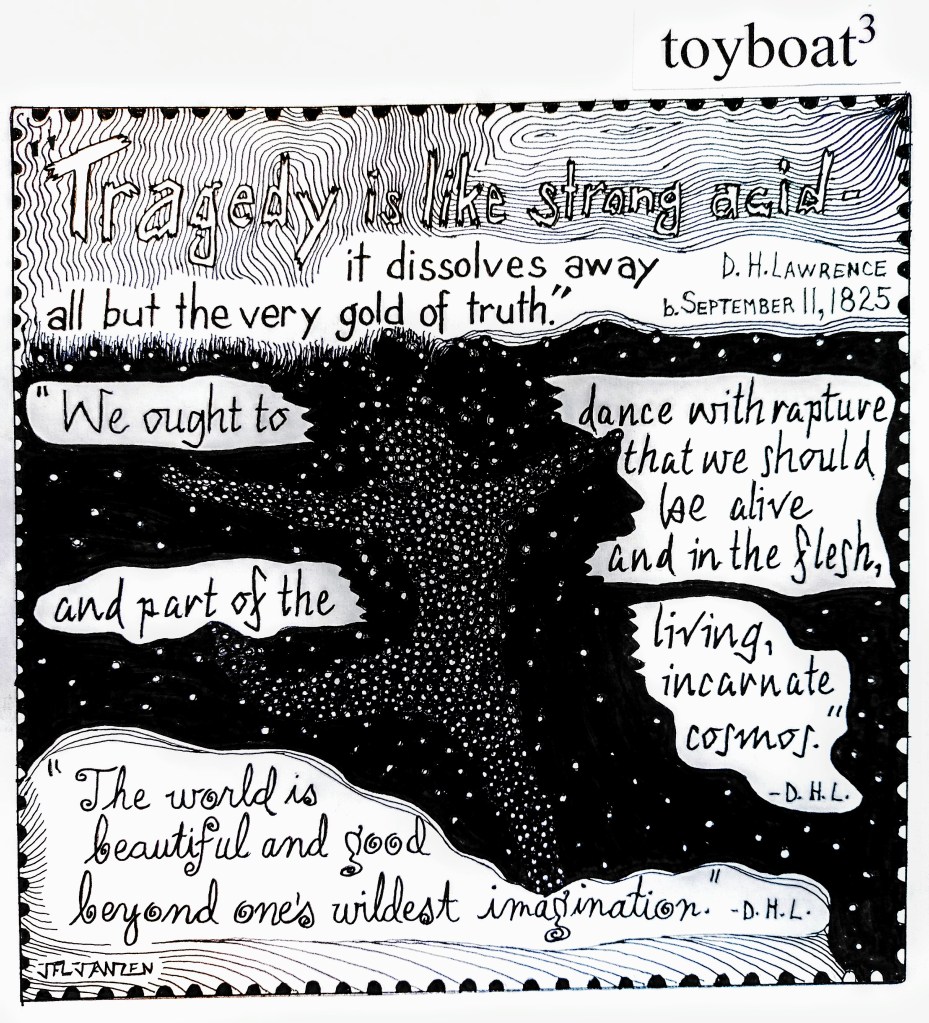 toyboat³
"Tragedy is like strong acid-
it dissolves away
all but the very gold of truth."
D. H. LAWRENCE
b. SEPTEMBER 11, 1825
"We ought to
dance with rapture
that we should
be alive
and in the flesh,
and part of the
living,
incarnate
cosmos."
- D. H. L.
"The world is
beautiful and good
beyond one's wildest imagination." - D. H. L.
JFL JANZEN